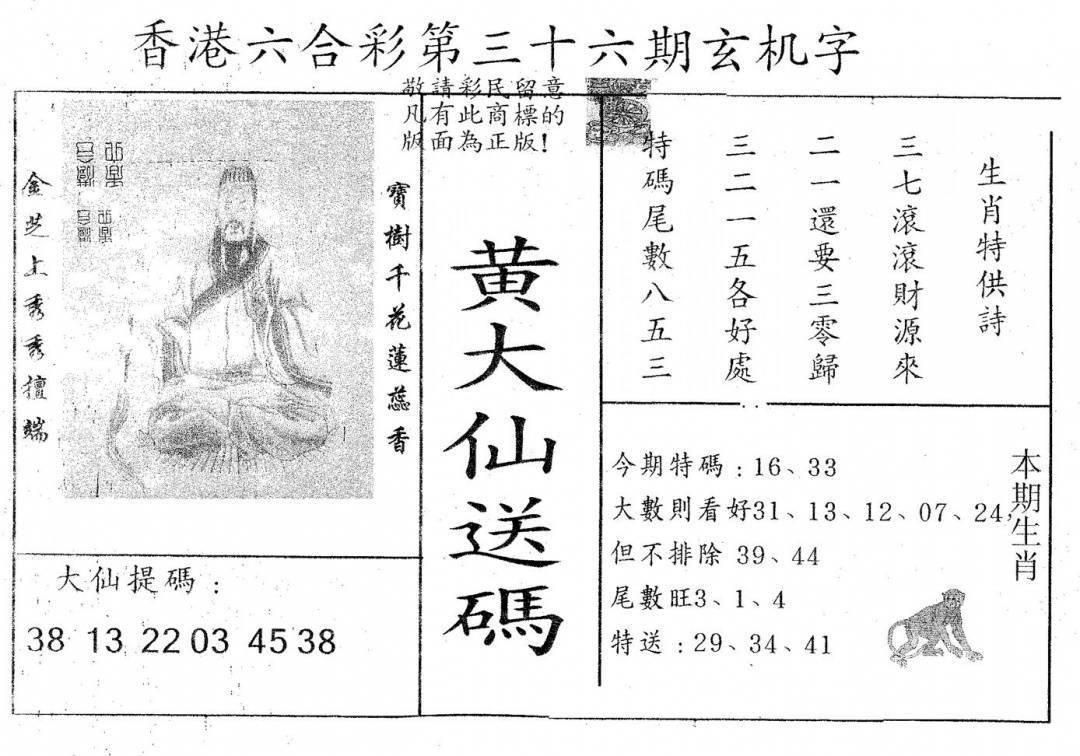 香港六合彩第三十六期玄机字
敬請彩民留意
凡有此商標的
版面為正版!
寶樹千花蓮蕊香
金芝上秀秀擅端
大仙提碼:
38 13 22 03 45 38
黄大仙送碼
生肖特供詩
三七滾滾財源來
二一還要三零歸
三二一五各好處
特碼尾數八五三
今期特碼:16、33
大數則看好31、13、12、07、24,
但不排除 39、44
尾數旺3、1、4
特送:29、34、41
本期生肖